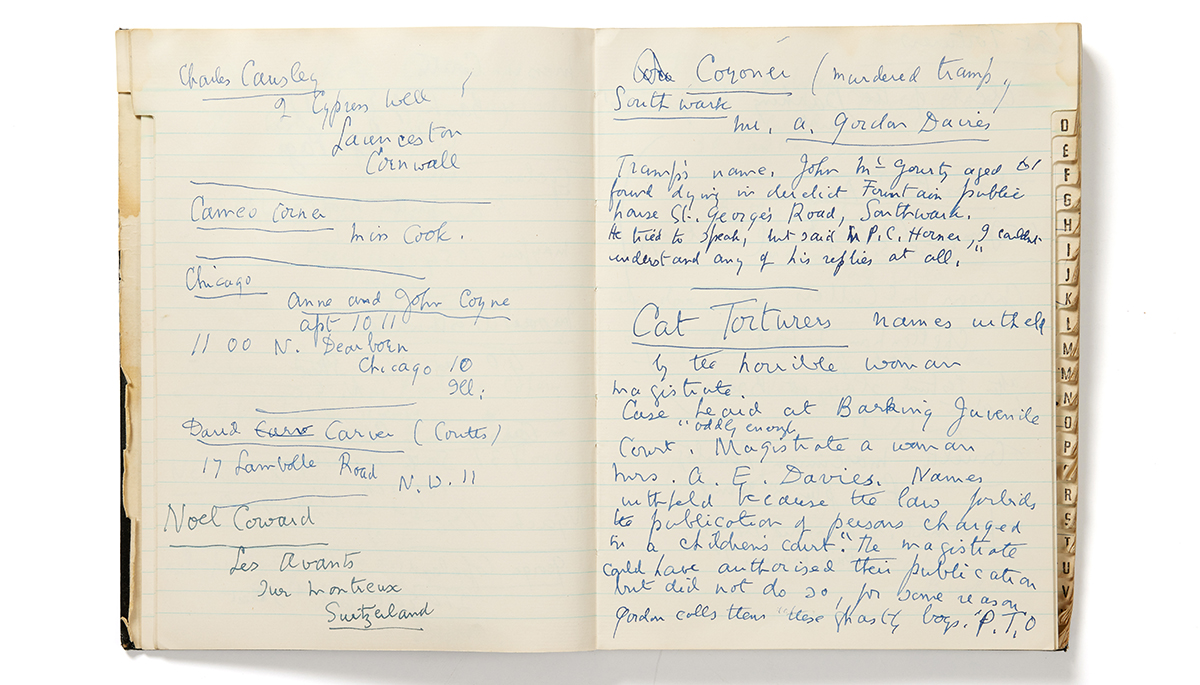 Charles Causley
2 Cypress Well
Launceston
Cornwall
Cameo Corner
Miss Cook.
Chicago
Anne and John Coyne
apt 1011
1100 N. Dearborn
Chicago 10
Ill.
David Carver (Coutts)
17 Lambolle Road
N.W. 11
Noel Coward
Les Avants
Sur Montreux
Switzerland
Coroner (murdered tramp,
Southwark
Mr. A. Gordon Davies
Tramp's name, John Mc Gourty aged
found dying in derelict Fountain public
house St. George's Road, Southwark.
He tried to speak, but said P.C. Horner, "I couldn't
understand any of his replies at all."
Cat Torturers names witheld
by the horrible woman
magistrate.
Case heard at Barking Juvenile
"oddly enough
Court. Magistrate a woman
Mrs. A. E. Davies. Names
withheld because the law forbids
the publication of persons charged
in a children's court." The magistrate
could have authorised their publication
but did not do so, for some reason,
Gordon calls them "these ghastly boys." P.T.O
D
E
F
G
H
I
J
K
L
M
M
N
O
P
R
S
T
U
V